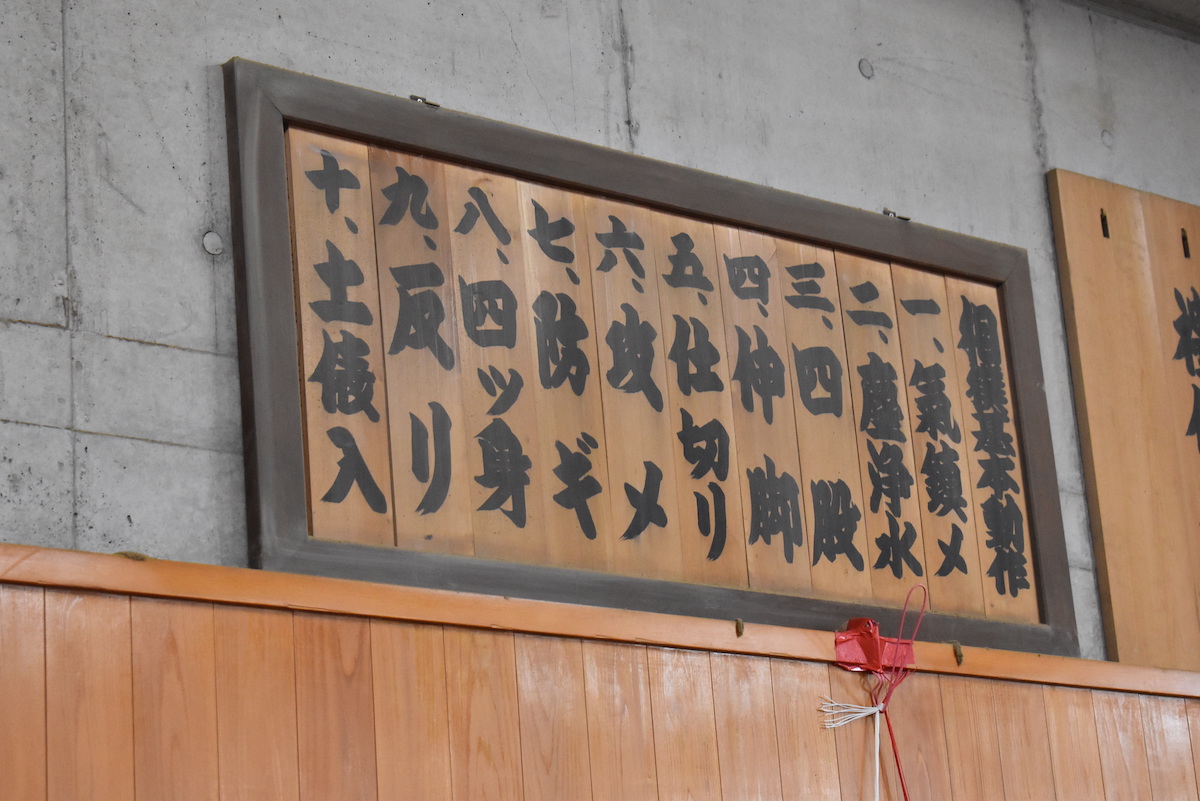 相撲基本動作
一、氣鎮メ
二、塵浄水
三、四股
四、伸脚
五、仕切リ
六、攻メ
七、防ギ
八、四ツ身
九、反リ
十、土俵入